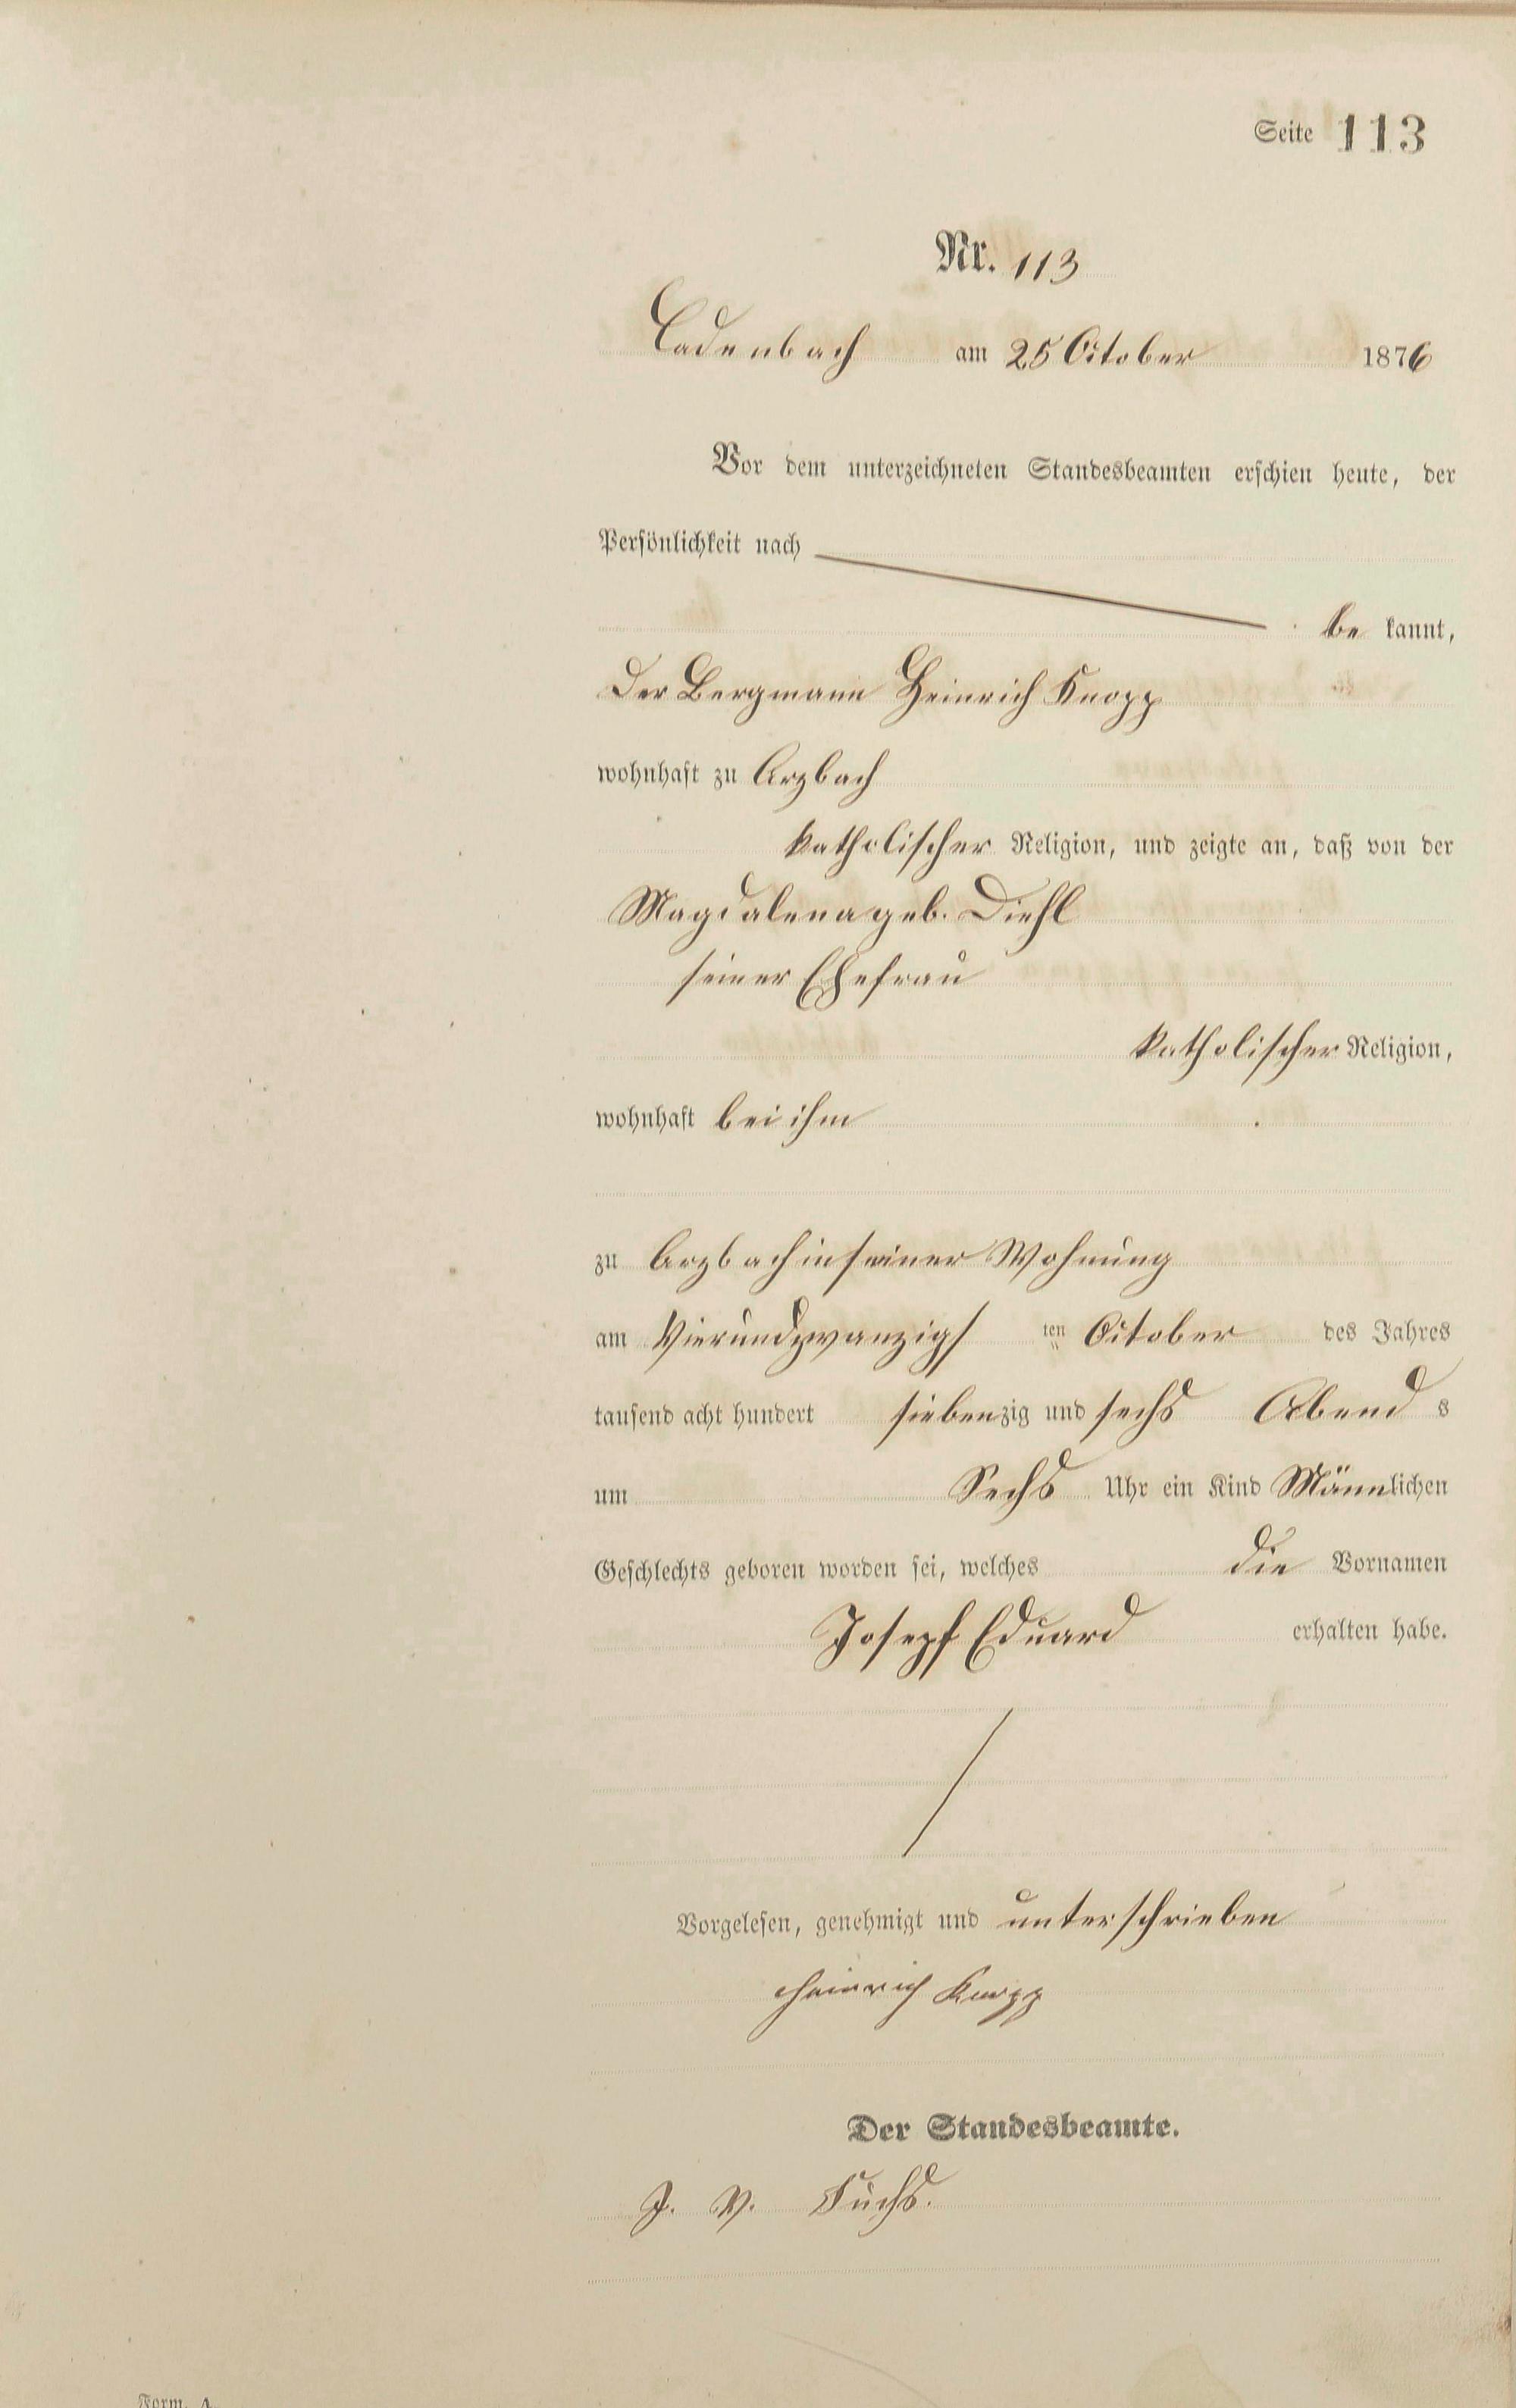 Seite 113
Nr. 113
Cadenbach am 25 October 1876
Vor dem unterzeichneten Standesbeamten erschien heute, der
Persönlichkeit nach
be kannt,
der Bergmann Heinrich Knopp
wohnhaft zu Arzbach
katholischer Religion, und zeigte an, daß von der
Magdalena geb. Diehl
seiner Ehefrau
katholischer Religion,
wohnhaft bei ihm
zu Arzbach in seiner Wohnung
am Vierundzwanzigs ten October des Jahres
tausend acht hundert siebenzig und sechs Abend s
um Sechs Uhr ein Kind Männlichen
Geschlechts geboren worden sei, welches die Vornamen
Josepf Eduard erhalten habe.
Vorgelesen, genehmigt und unterschrieben
Heinrich Knopp
Der Standesbeamte.
J. V. Fuchs.
Form. A.